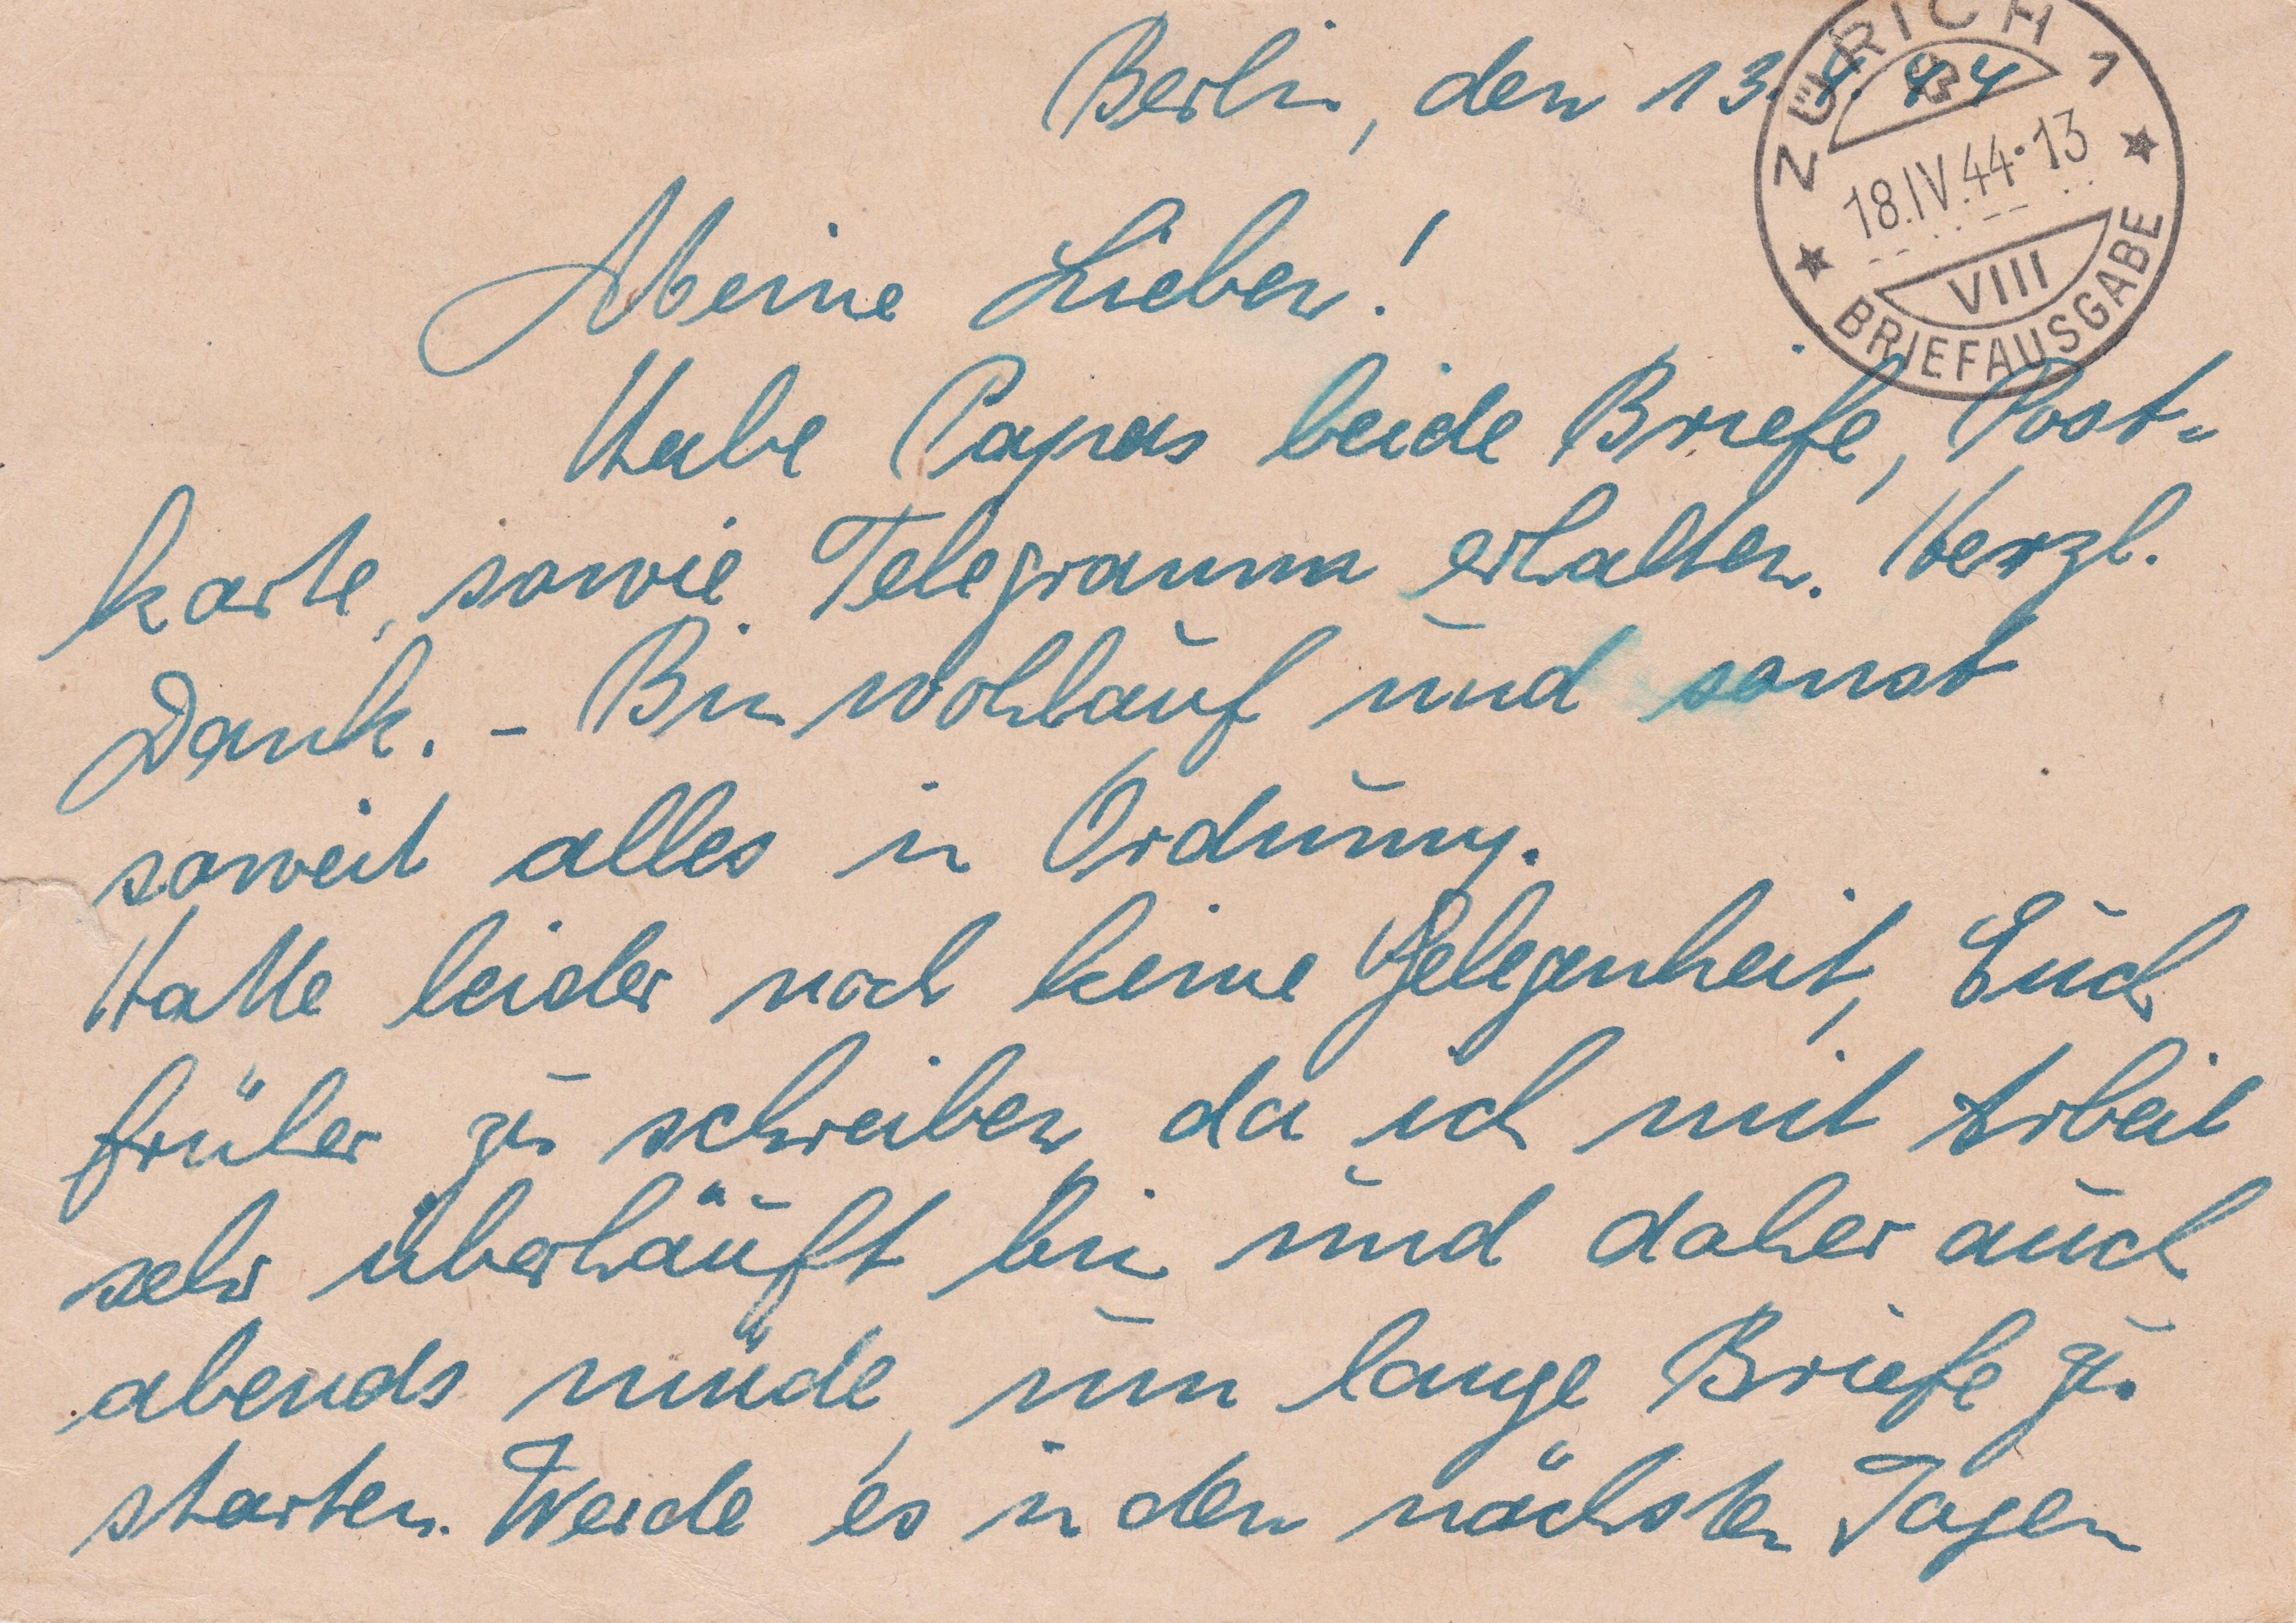 Berlin, den 13. 4. 44
ZÜRICH 1
B
18.IV.44-13
VIII
BRIEFAUSGABE
Meine Lieben!
Habe Papas beide Briefe, Post-
karte, sowie Telegramm erhalten. Herzl.
Dank. - Bin wohlauf und sonst
soweit alles in Ordnung.
Hatte leider noch keine Gelegenheit, Euch
früher zu schreiben, da ich mit Arbeit
sehr überhäuft bin und daher auch
abends müde, um lange Briefe zu
starten. Werde es in den nächsten Tagen